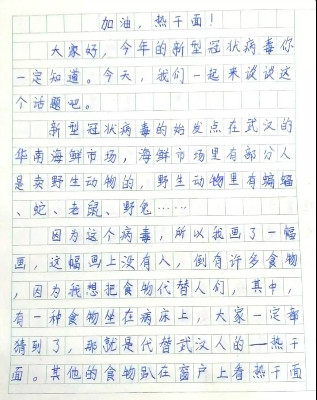 加油，热干面！
大家好，今年的新型冠状病毒你
一定知道。今天，我们一起来谈谈这
个话题吧。
新型冠状病毒的始发点在武汉的
华南海鲜市场，海鲜市场里有部分人
是卖野生动物的，野生动物里有蝙蝠
、蛇、老鼠、野兔……
因为这个病毒，所以我画了一幅
画，这幅画上没有人，倒有许多食物
，因为我想把食物代替人们，其中，
有一种食物坐在病床上，大家一定都
猜到了，那就是代替武汉人的—热干
面。其他的食物趴在窗户上看热干面